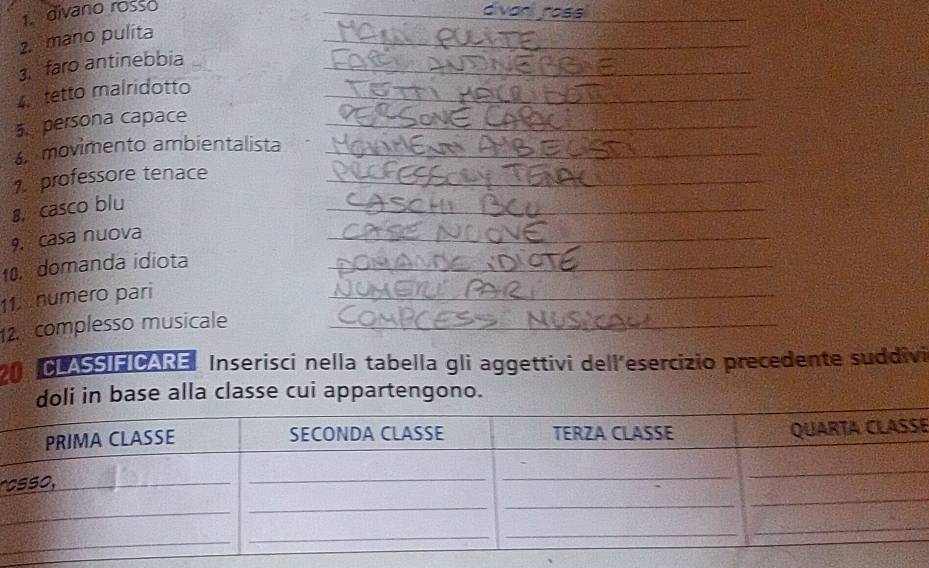 1. divano rosso divani rossi
2. mano pulita MANI PULITE
3. faro antinebbia FARI ANTINEBBIE
4. tetto malridotto TETTI MALRIDOTTI
5. persona capace PERSONE CAPACI
6. movimento ambientalista MOVIMENTI AMBELISTI
7. professore tenace PROFESSORY TENACI
8. casco blu CASCHI BLU
9. casa nuova CASE NUOVE
10. domanda idiota DOMANDE IDIOTE
11. numero pari NUMERI PARI
12. complesso musicale COMPLESSI MUSICALI
20 CLASSIFICARE Inserisci nella tabella gli aggettivi dell'esercizio precedente suddivi
doli in base alla classe cui appartengono.
PRIMA CLASSE SECONDA CLASSE TERZA CLASSE QUARTA CLASSE
rosso,